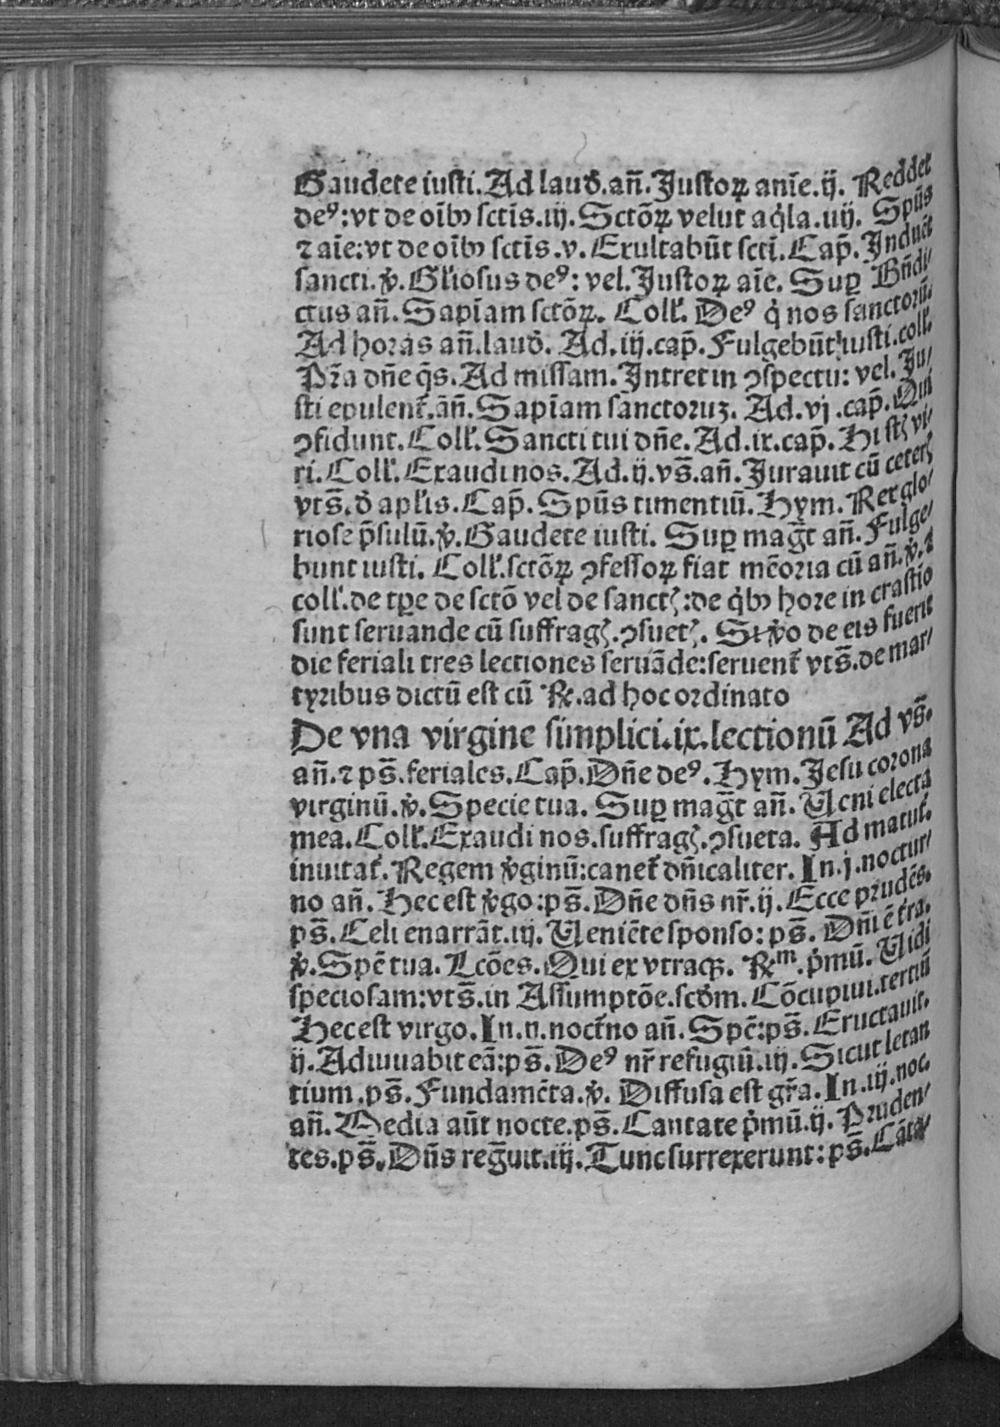 Gaudete iusti. Ad laud̕. an̄. Justoꝝ anīe. ij. Reddet
deꝰ: vt de oībꝫ sctīs. iij. Sctōꝝ velut aq̇la. iiij. Spūs
⁊ aīe: vt de oībꝫ sctīs. v. Exultabūt sctī. Cap̄. Inducēt
sancti. v̇. Gl'iosus deꝰ: vel. Justoꝝ aīe. Suꝑ Bn̄di/
ctus an̄. Sapīam sctōꝝ. Coll'. Deꝰ q̇ nos sanctorū.
Ad horas an̄. laud̕. Ad. iij. cap̄. Fulgebūt iusti. coll'.
Pr̄a dn̄e q̄s. Ad missam. Intret in ꝯspectu: vel. Ju/
sti epulent᷑. an̄. Sapīam sanctoruꝫ. Ad. vj. cap̄. Qui
ꝯfidunt. Coll'. Sancti tui dn̄e. Ad. ix. cap̄. Hi stꝫ vi/
ri. Coll'. Exaudi nos. Ad. ij. vs̄. an̄. Jurauit cū ceterꝭ
vts̄. d̕ apl'is. Cap̄. Spūs timentiū. Hym. Rex glo/
riose p̄sulū. v̇. Gaudete iusti. Suꝑ mag̅t an̄. Fulge/
bunt iusti. Coll'. sctōꝝ ꝯfessoꝝ fiat mēoria cū an̄. v̇. ⁊
coll'. de tꝑe de sctō vel de sanctꝭ: de q̇bꝫ hore in crastio
sunt seruande cū suffragꝭ. ꝯsuetꝭ. Si v̇o de eis fuerit
die feriali tres lectiones seruāde: seruent᷑ vts̄. de mar/
tyribus dictū est cū ℟. ad hoc ordinato
De vna virgine simplici. ix. lectionū Ad vs̄.
an̄. ⁊ ps̄. feriales. Cap̄. Dn̄e deꝰ. Hym. Jesu corona
virginū. v̇. Specie tua. Suꝑ mag̅t an̄. Veni electa
mea. Coll'. Exaudi nos. suffragꝭ. ꝯsueta. Ad matut᷑.
inuitat᷑. Regem v̇ginū: canet᷑ dn̄icaliter. In. j. noctur/
no an̄. Hec est v̇go: ps̄. Dn̄e dn̄s nr̄. ij. Ecce prudēs.
ps̄. Celi enarrāt. iij. Veniēte sponso: ps̄. Dn̄i ē tr̄a.
v̇. Spē tua. Lcōes. Qui ex vtraqꝫ. ℟m. ṗmū. Vidi
speciosam: vts̄. in Assumptōe. scd̕m. Cōcupiui. tertiū
Hec est virgo. In. ij. noct᷑no an̄. Spē: ps̄. Eructauit.
ij. Adiuuabit eā: ps̄. Deꝰ nr̄ refugiū. iij. Sicut letan
tium. ps̄. Fundamēta. v̇. Diffusa est gr̄a. In. iij. noc.
an̄. Media aūt nocte. ps̄. Cantate ṗmū. ij. Pruden/
tes. ps̄. Dn̄s reg̅uit. iij. Tunc surrexerunt: ps̄. Cāta/